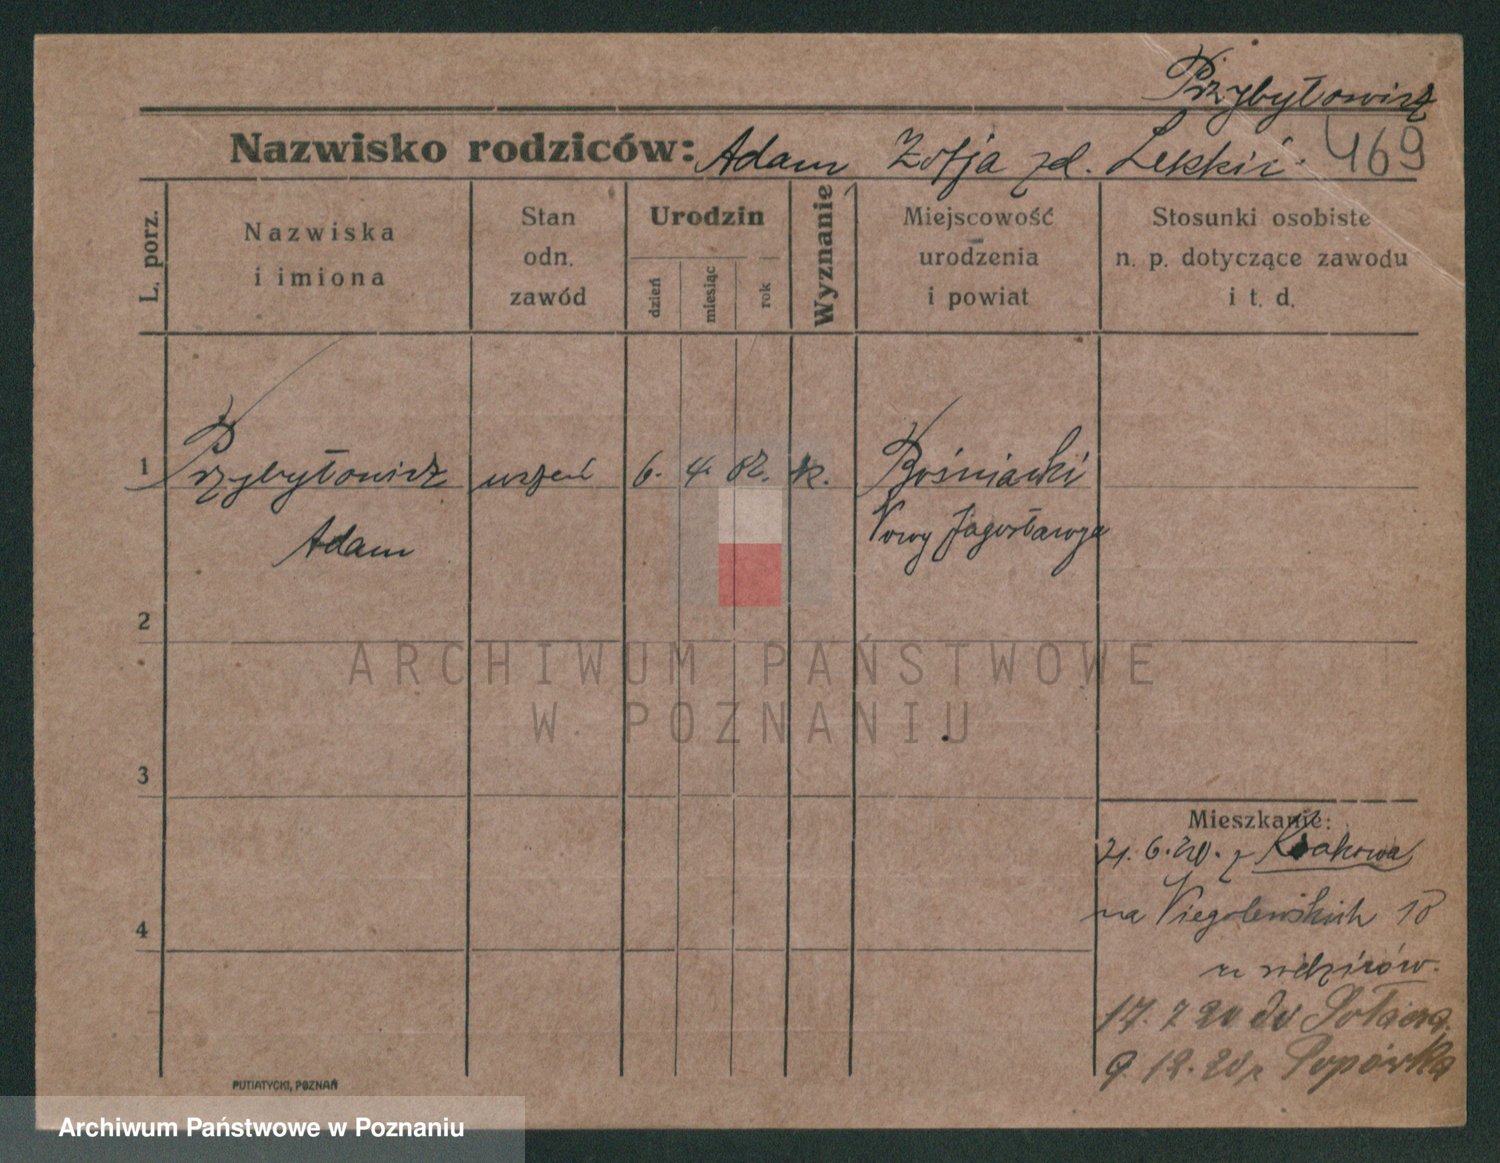 Przybyłowicz
Nazwisko rodziców: Adam Zofja zd. Lekkić. 469
L. porz.
Nazwiska
i imiona
Stan
odn.
zawód
Urodzin
dzień
miesiąc
rok
Wyznanie
Miejscowość
urodzenia
i powiat
Stosunki osobiste
n. p. dotyczące zawodu
i t. d.
1 Przybyłowicz uczeń 6. 4. 02. rk. Bośniacki
Adam Nowy
2
ARCHIWUM PAŃSTWOWE
W POZNANIU
3
4
Mieszkanie:
21. 6. 20. z Krakowa
na Niegolewskich 18
u rodziców.
17. 7 20 do Sołacza.
9. 12. 20 z
PUTIATYCKI, POZNAŃ
Archiwum Państwowe w Poznaniu